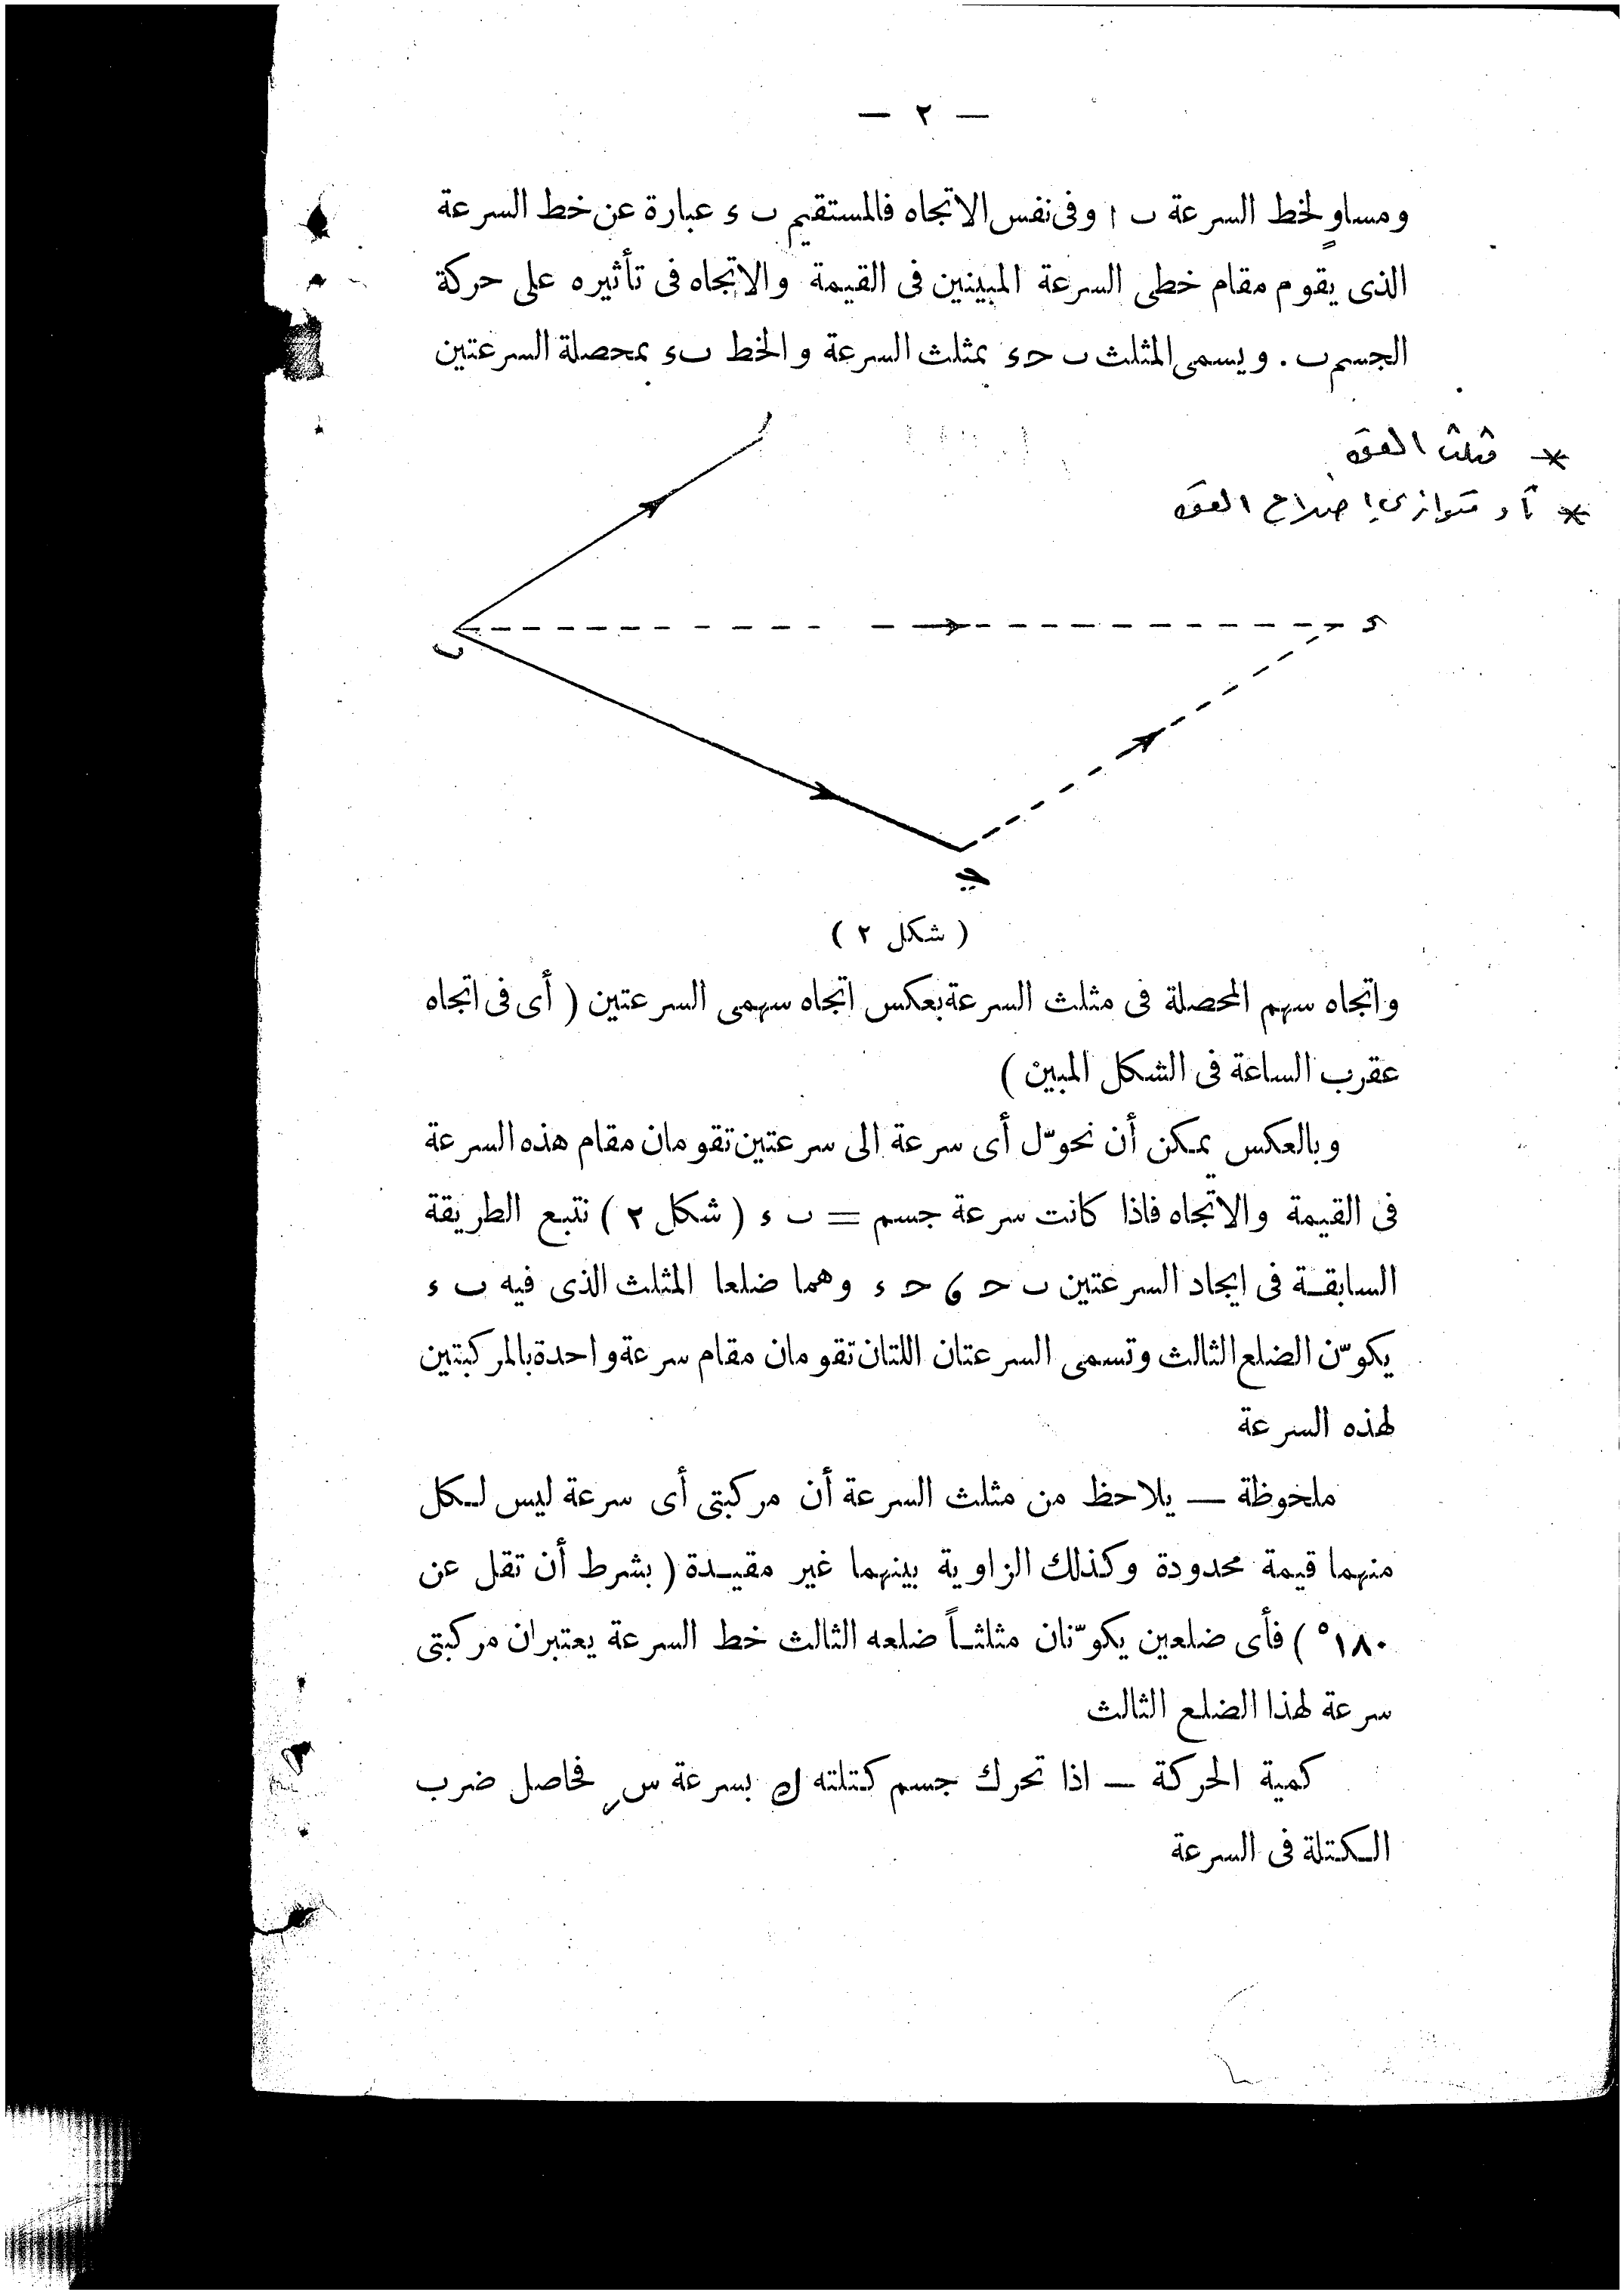 — ٢ —
ومساوٍ لخط السرعة ب ا وفى نفس الاتجاه فالمستقيم ب ء عبارة عن خط السرعة
الذى يقوم مقام خطى السرعة المبينين فى القيمة والاتجاه فى تأثيره على حركة
الجسم ب . ويسمى المثلث ب حـ ء بمثلث السرعة والخط ب ء بمحصلة السرعتين
* مثلث القوة
* أو متوازى اضلاع القوة
ا
ء
ب
حـ
( شكل ٢ )
واتجاه سهم المحصلة فى مثلث السرعة بعكس اتجاه سهمى السرعتين ( أى فى اتجاه
عقرب الساعة فى الشكل المبين )
وبالعكس يمكن أن نحوّل أى سرعة الى سرعتين تقومان مقام هذه السرعة
فى القيمة والاتجاه فاذا كانت سرعة جسم = ب ء ( شكل ٢ ) نتبع الطريقة
السابقة فى ايجاد السرعتين ب حـ و حـ ء وهما ضلعا المثلث الذى فيه ب ء
يكوّن الضلع الثالث وتسمى السرعتان اللتان تقومان مقام سرعة واحدة بالمركبتين
لهذه السرعة
ملحوظة — يلاحظ من مثلث السرعة أن مركبتى أى سرعة ليس لكل
منهما قيمة محدودة وكذلك الزاوية بينهما غير مقيدة ( بشرط أن تقل عن
١٨٠° ) فأى ضلعين يكوّنان مثلثاً ضلعه الثالث خط السرعة يعتبران مركبتى
سرعة لهذا الضلع الثالث
كمية الحركة — اذا تحرك جسم كتلته ك بسرعة س فحاصل ضرب
الكتلة فى السرعة